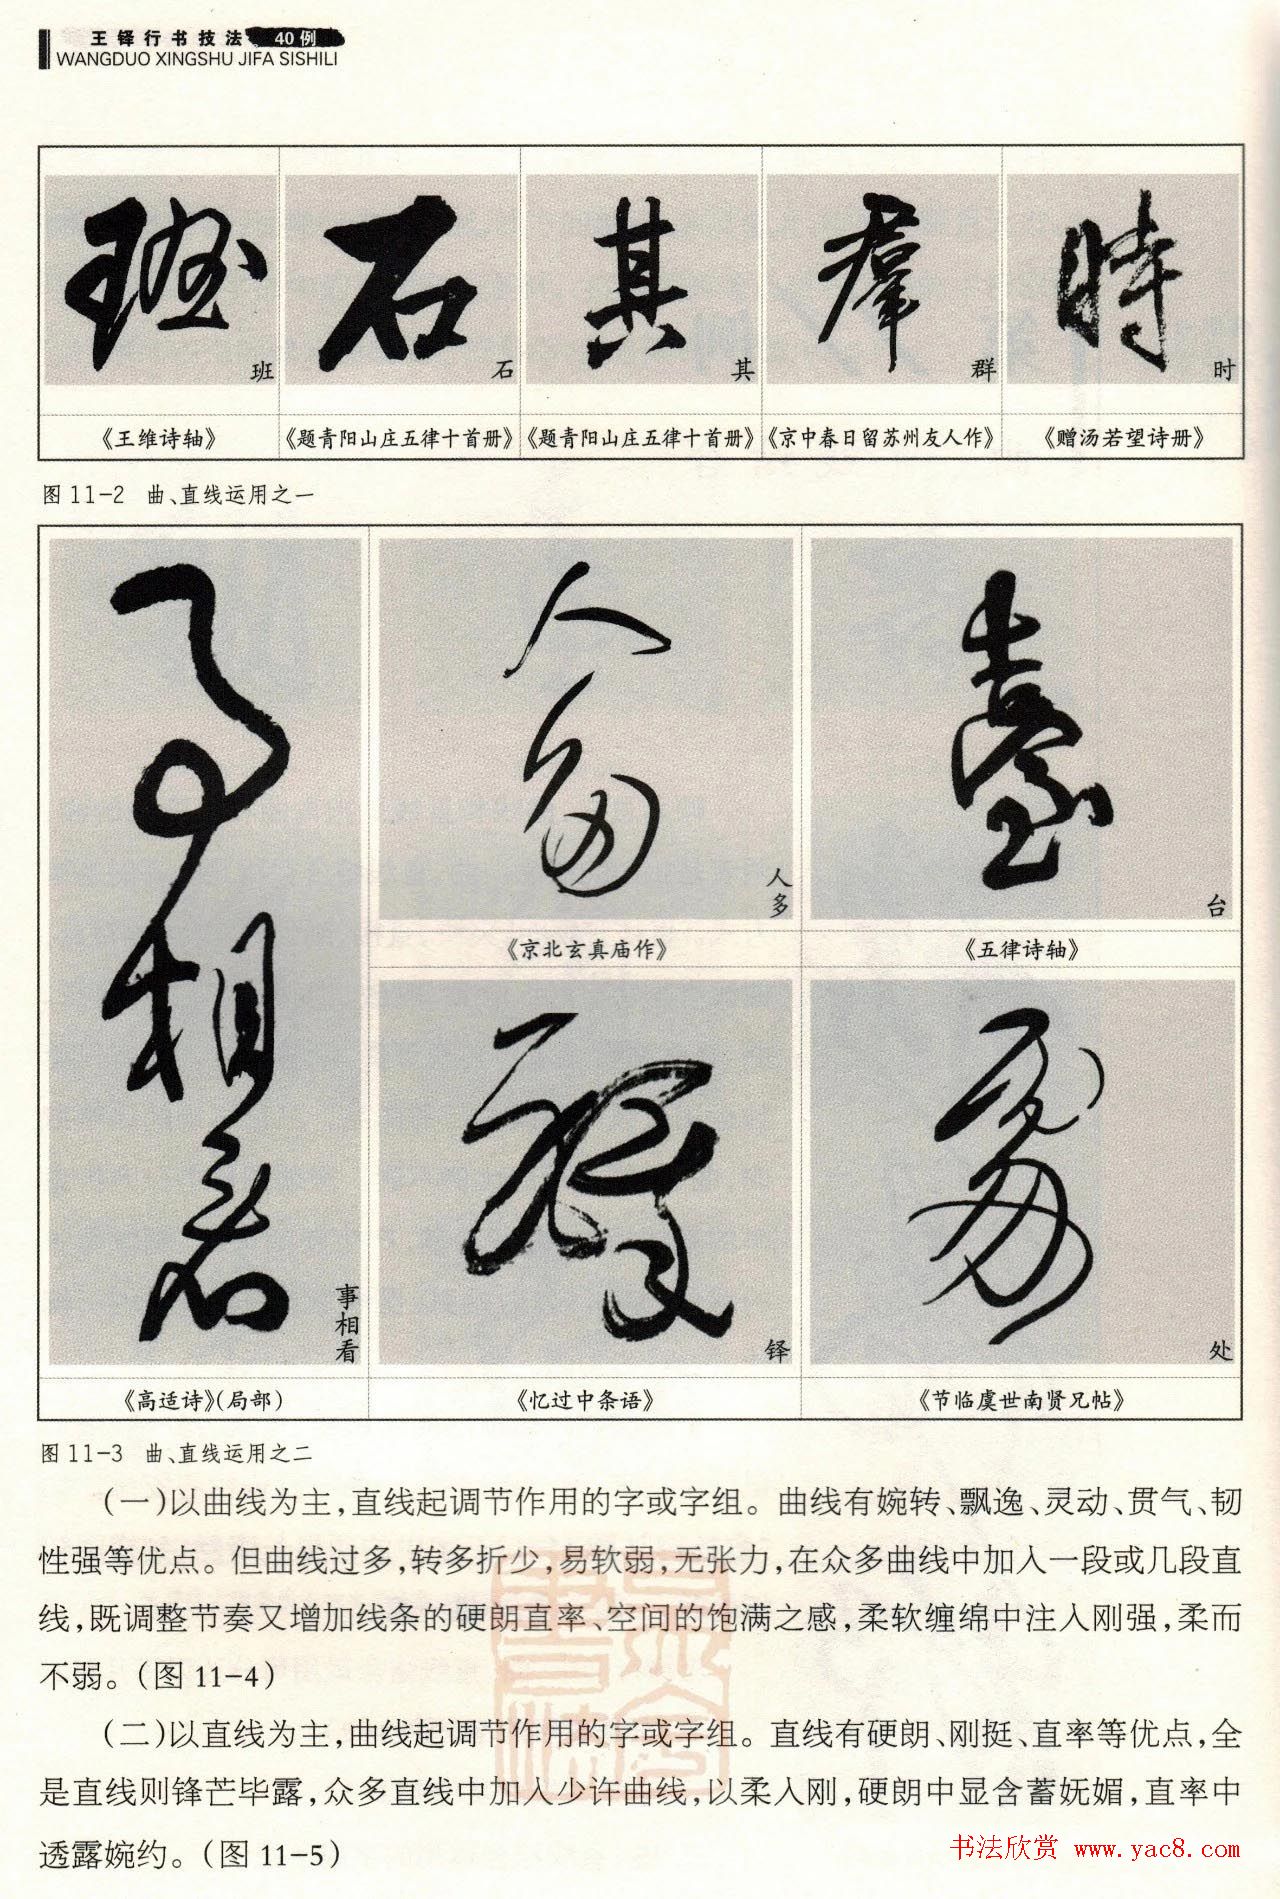 王铎行书技法 40例
WANGDUO XINGSHU JIFA SISHILI
班 石 其 群 时
《王维诗轴》 《题青阳山庄五律十首册》 《题青阳山庄五律十首册》 《京中春日留苏州友人作》 《赠汤若望诗册》
图 11-2 曲、直线运用之一
事相看
人多
台
《京北玄真庙作》 《五律诗轴》
铎
处
《高适诗》(局部) 《忆过中条语》 《节临虞世南贤兄帖》
图 11-3 曲、直线运用之二
(一)以曲线为主,直线起调节作用的字或字组。曲线有婉转、飘逸、灵动、贯气、韧
性强等优点。但曲线过多,转多折少,易软弱,无张力,在众多曲线中加入一段或几段直
线,既调整节奏又增加线条的硬朗直率、空间的饱满之感,柔软缠绵中注入刚强,柔而
不弱。(图 11-4)
(二)以直线为主,曲线起调节作用的字或字组。直线有硬朗、刚挺、直率等优点,全
是直线则锋芒毕露,众多直线中加入少许曲线,以柔入刚,硬朗中显含蓄妩媚,直率中
透露婉约。(图 11-5)
书法欣赏 www.yac8.com